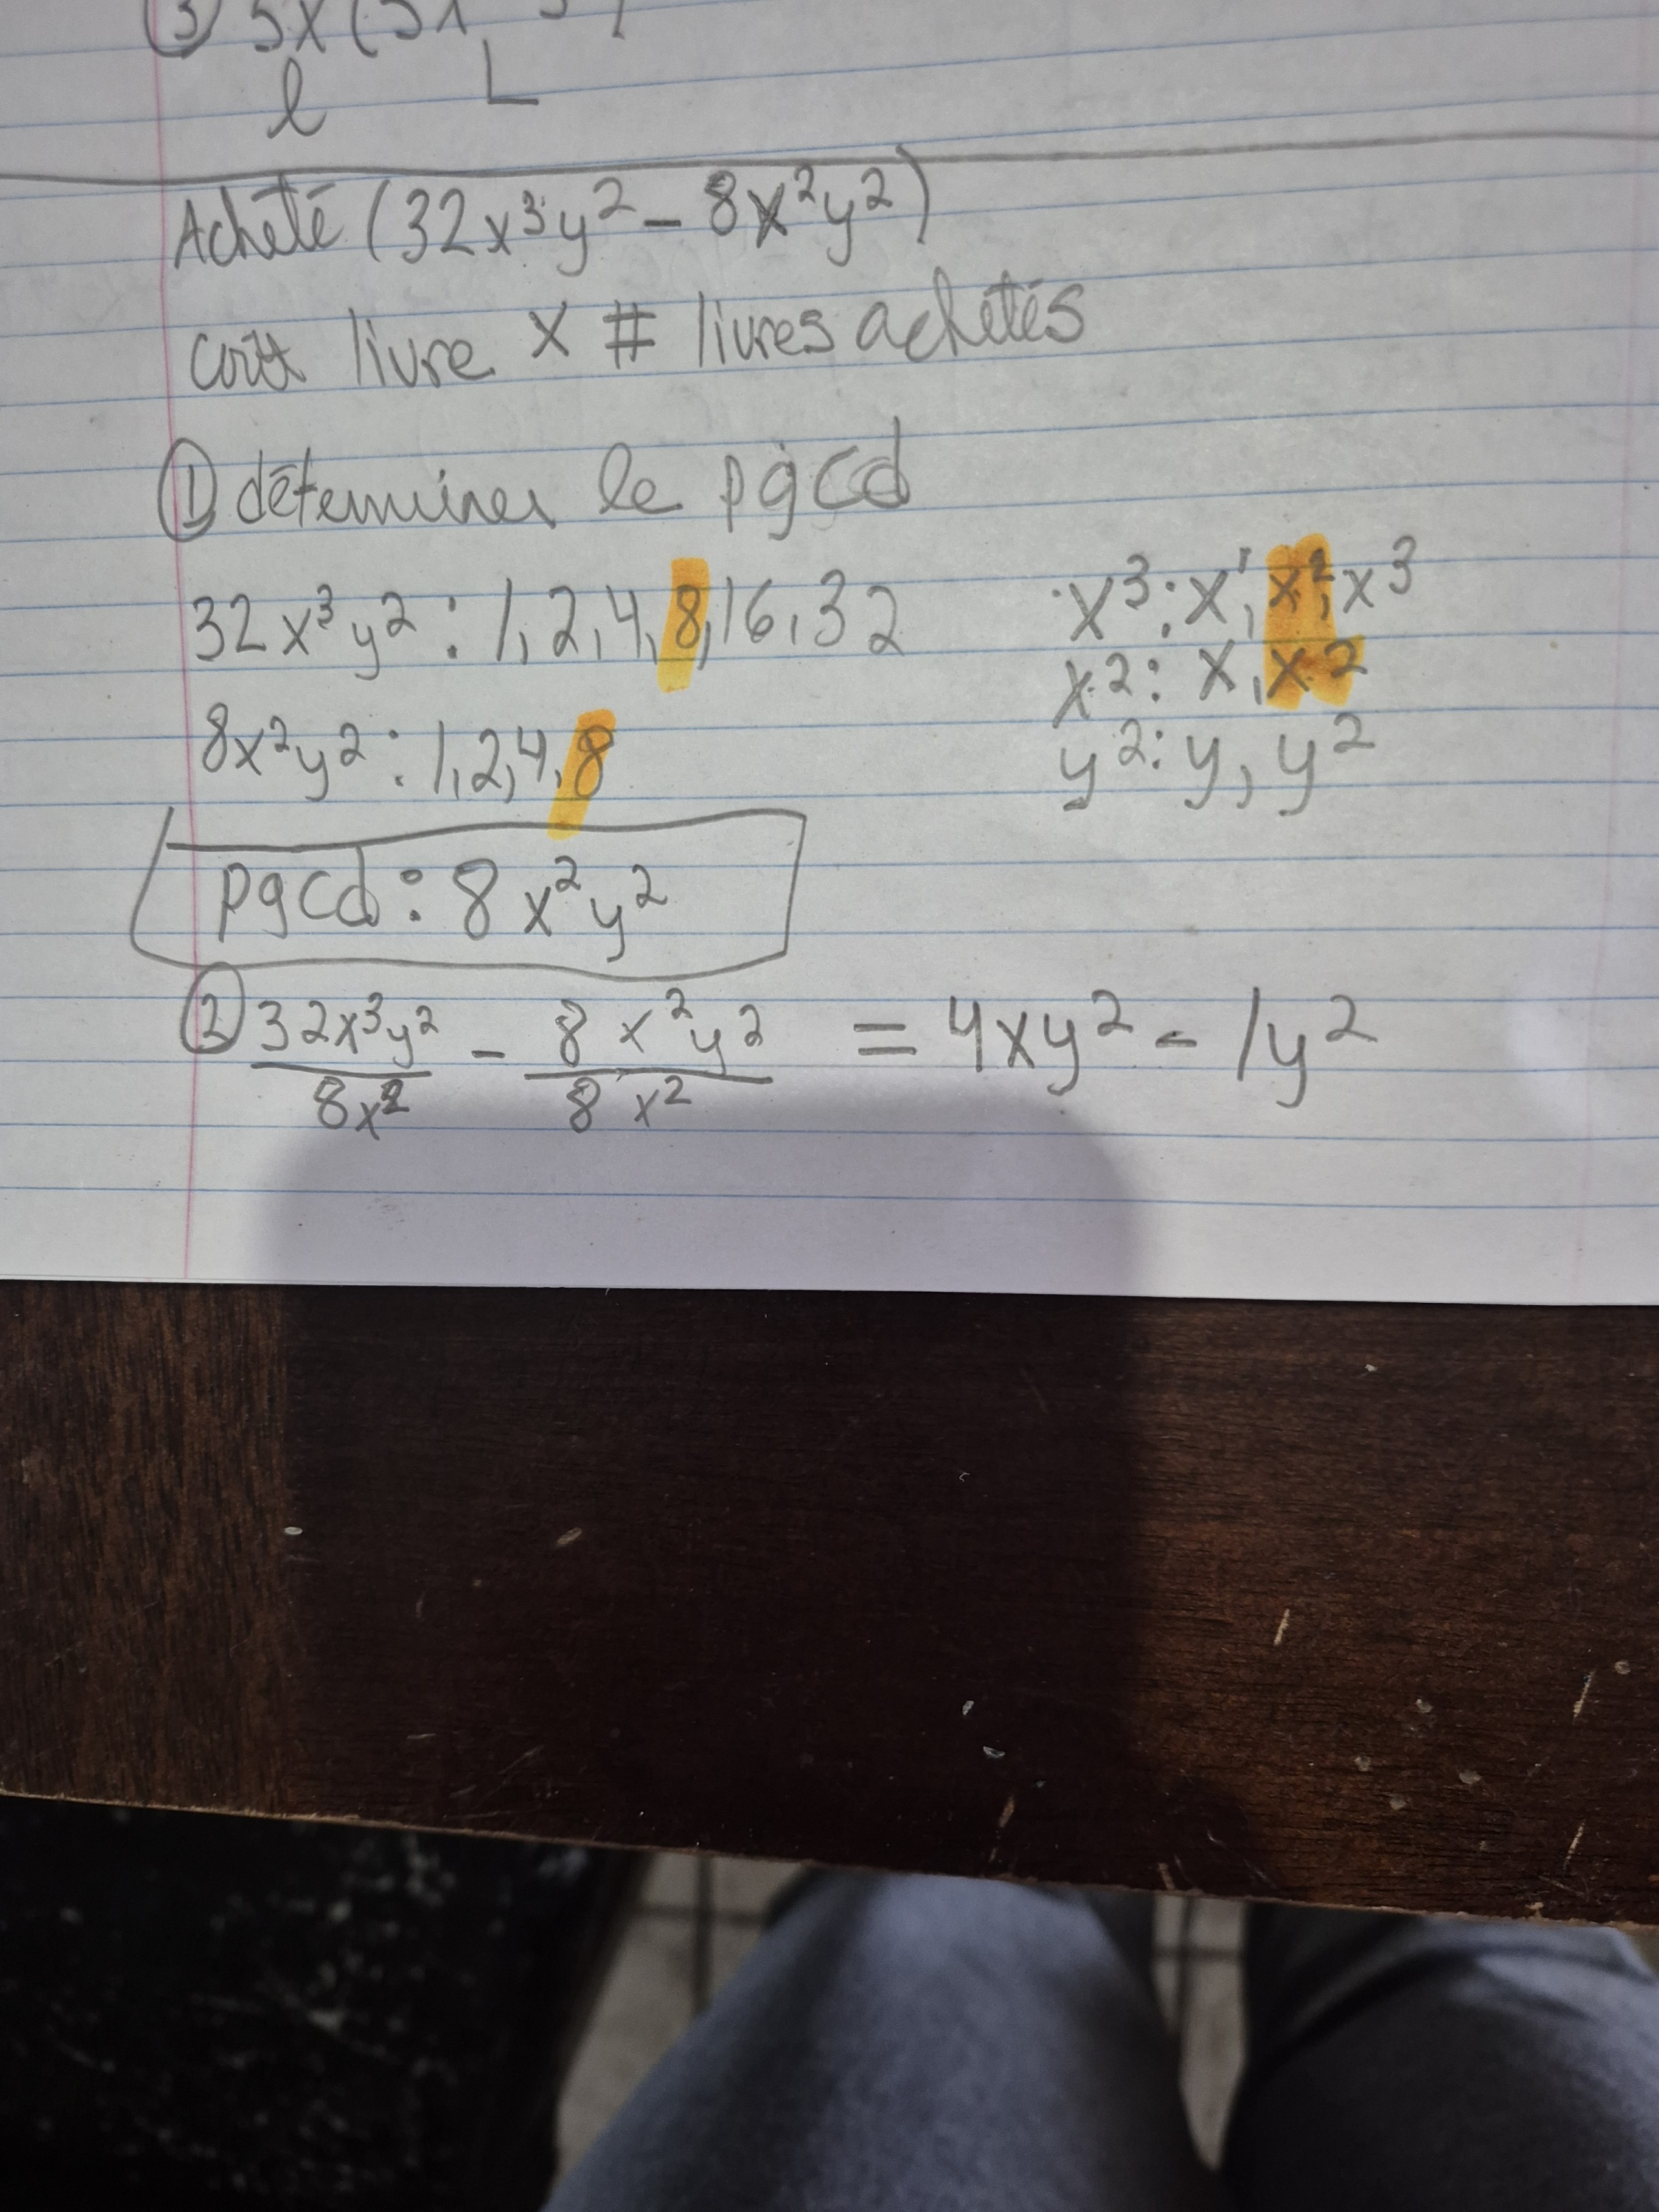 ③ 5x(
l L
Acheté (32x³y² - 8x²y²)
coût livre x # livres achetés
① déterminer le pgcd
32x³y² : 1,2,4,8,16,32
x³: x¹, x², x³
8x²y² : 1,2,4,8
x²: x, x²
y²: y, y²
pgcd: 8x²y²
② 32x³y²/8x² - 8x²y²/8x² = 4xy² - 1y²